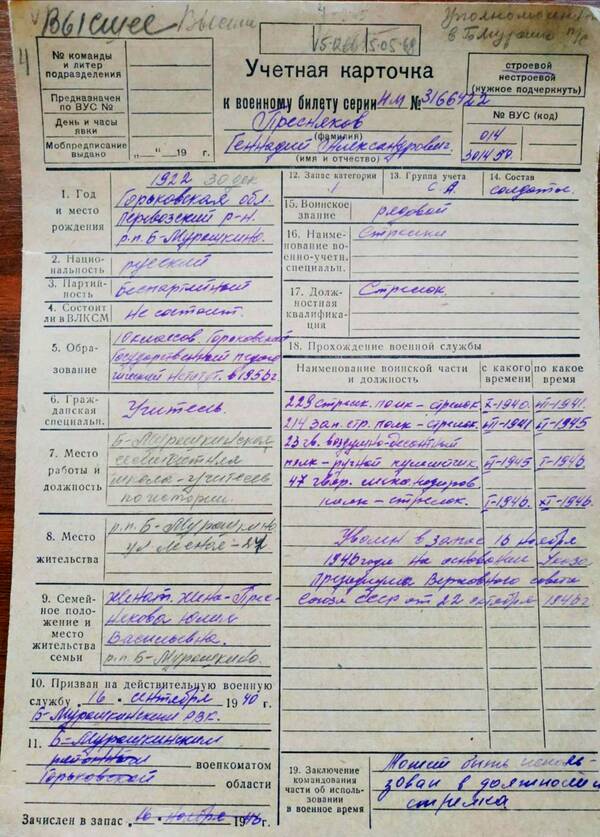 Высшее Высш
4
4
Уполкомбинат
в Б Мурашк
V5-026 15.05.68
№ команды
и литер
подразделения
Предназначен
по ВУС №
День и часы
явки
Мобпредписание
выдано „ — “ 19 г.
Учетная карточка
к военному билету серии НМ № 3166422
Пресняков
(фамилия)
Геннадий Александрович
(имя и отчество)
строевой
нестроевой
(нужное подчеркнуть)
№ ВУС (код)
014
301450.
1. Год
и место
рождения
1922 30 дек
Горьковская обл.
Перевозский р-н.
р.п. Б-Мурашкино.
2. Нацио-
нальность
русский
3. Партий-
ность
Беспартийный
4. Состоит
ли в ВЛКСМ
Не состоит.
5. Обра-
зование
10 классов. Горьковский
Государственный педаго-
гический в 1956 г.
6. Граж-
данская
специальн.
Учитель.
7. Место
работы и
должность
Б-Мурашкинская
школа-учитель
по истории.
8. Место
жительства
р.п. Б-Мурашкино
ул
9. Семей-
ное поло-
жение и
место
жительства
семьи
Женат. Жена-Прес-
някова Юлия
Васильевна.
р.п. Б-Мурашкино.
10. Призван на действительную военную
службу „16“ сентября 1940 г.
Б-Мурашкинским РВК.
11. Б-Мурашкинским
районным военкоматом
Горьковской области
Зачислен в запас „16“ ноября 1946 г.
12. Запас категории
1
13. Группа учета
С.А.
14. Состав
солдаты.
15. Воинское
звание
рядовой
16. Наиме-
нование во-
енно-учетн.
специальн.
Стрелки
17. Долж-
ностная
квалифика-
ция
Стрелок.
18. Прохождение военной службы
Наименование воинской части
и должность
с какого
времени
по какое
время
229 стрелк. полк-стрелок. X-1940. VII-1941.
214 зап. стр. полк-стрелок. VII-1941 VI-1945
23 гв. воздушно-десантный
полк-ручной пулеметчик. VI-1945 I-1946.
47 гвар. механизиров.
полк-стрелок. I-1946. XI-1946.
Уволен в запас 16 ноября
1946 года на основании Указа
Президиума Верховного совета
Союза ССР от 22 октября 1946 г
19. Заключение
командования
части об исполь-
зовании
в военное время
Может быть исполь-
зован в должности
стрелка.